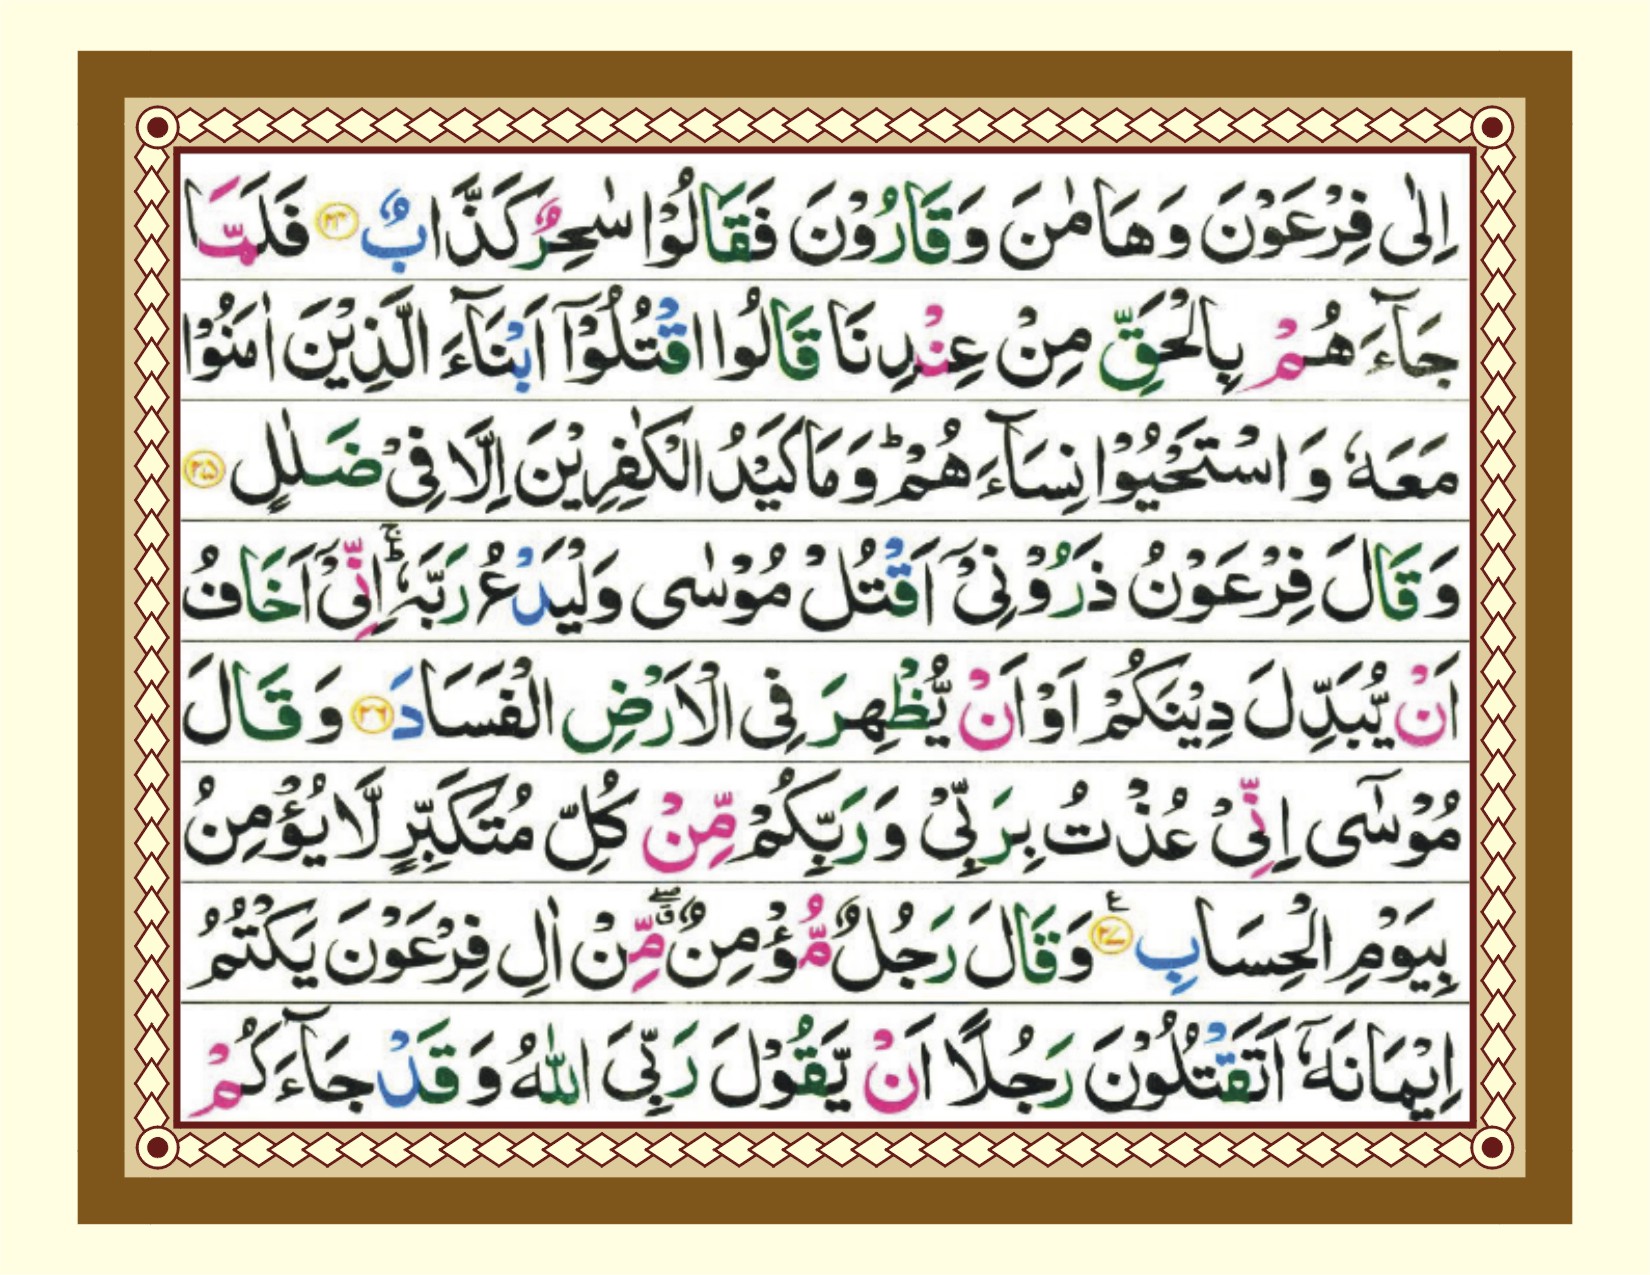 اِلٰى فِرْعَوْنَ وَهَامٰنَ وَقَارُوْنَ فَقَالُوْا سٰحِرٌ كَذَّابٌ ﴿۲۴﴾ فَلَمَّا
جَآءَهُمْ بِالْحَقِّ مِنْ عِنْدِنَا قَالُوا اقْتُلُوْۤا اَبْنَآءَ الَّذِيْنَ اٰمَنُوْا
مَعَهٗ وَ اسْتَحْيُوْا نِسَآءَهُمْ ؕ وَمَا كَيْدُ الْكٰفِرِيْنَ اِلَّا فِيْ ضَلٰلٍ ﴿۲۵﴾
وَقَالَ فِرْعَوْنُ ذَرُوْنِيْۤ اَقْتُلْ مُوْسٰى وَلْيَدْعُ رَبَّهٗ ۚؕ اِنِّيْۤ اَخَافُ
اَنْ يُّبَدِّلَ دِيْنَكُمْ اَوْ اَنْ يُّظْهِرَ فِى الْاَرْضِ الْفَسَادَ ﴿۲۶﴾ وَقَالَ
مُوْسٰۤى اِنِّيْ عُذْتُ بِرَبِّيْ وَرَبِّكُمْ مِّنْ كُلِّ مُتَكَبِّرٍ لَّا يُؤْمِنُ
بِيَوْمِ الْحِسَابِ ﴿۲۷﴾ ع وَقَالَ رَجُلٌ مُّؤْمِنٌ ۖق مِّنْ اٰلِ فِرْعَوْنَ يَكْتُمُ
اِيْمَانَهٗۤ اَتَقْتُلُوْنَ رَجُلًا اَنْ يَّقُوْلَ رَبِّيَ اللّٰهُ وَقَدْ جَآءَكُمْ